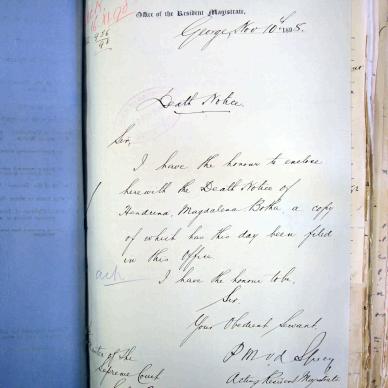 Office of the Resident Magistrate,
George, Nov 10th 1898.
Death Notice
Sir,
I have the honour to enclose
herewith the Death Notice of
Hendrina, Magdalena Botha, a copy
of which has this day been filed
in this Office.
I have the honour to be,
Sir,
Your Obedient Servant,
Acting Resident Magistrate
Master of the
Supreme Court